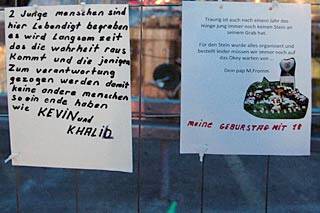 2 Junge menschen sind
hier Lebendig begraben
Es wird Langsam zeit
das die wahrheit raus
Kommt und die jenigen
zum verantwortung
gezogen werden damit
keine anderen menschen
so ein ende haben
wie KEVIN und
KHALID
Traurig ist auch nach einem Jahr das
Junge jung immer noch keinen Stein an
seinem Grab hat.
Für den Stein wurde alles organisiert und
bestellt leider müssen wir immer noch auf
das Okey warten von ...
Dein pap M.Fromm
meine GEBURSTAG MIT 18